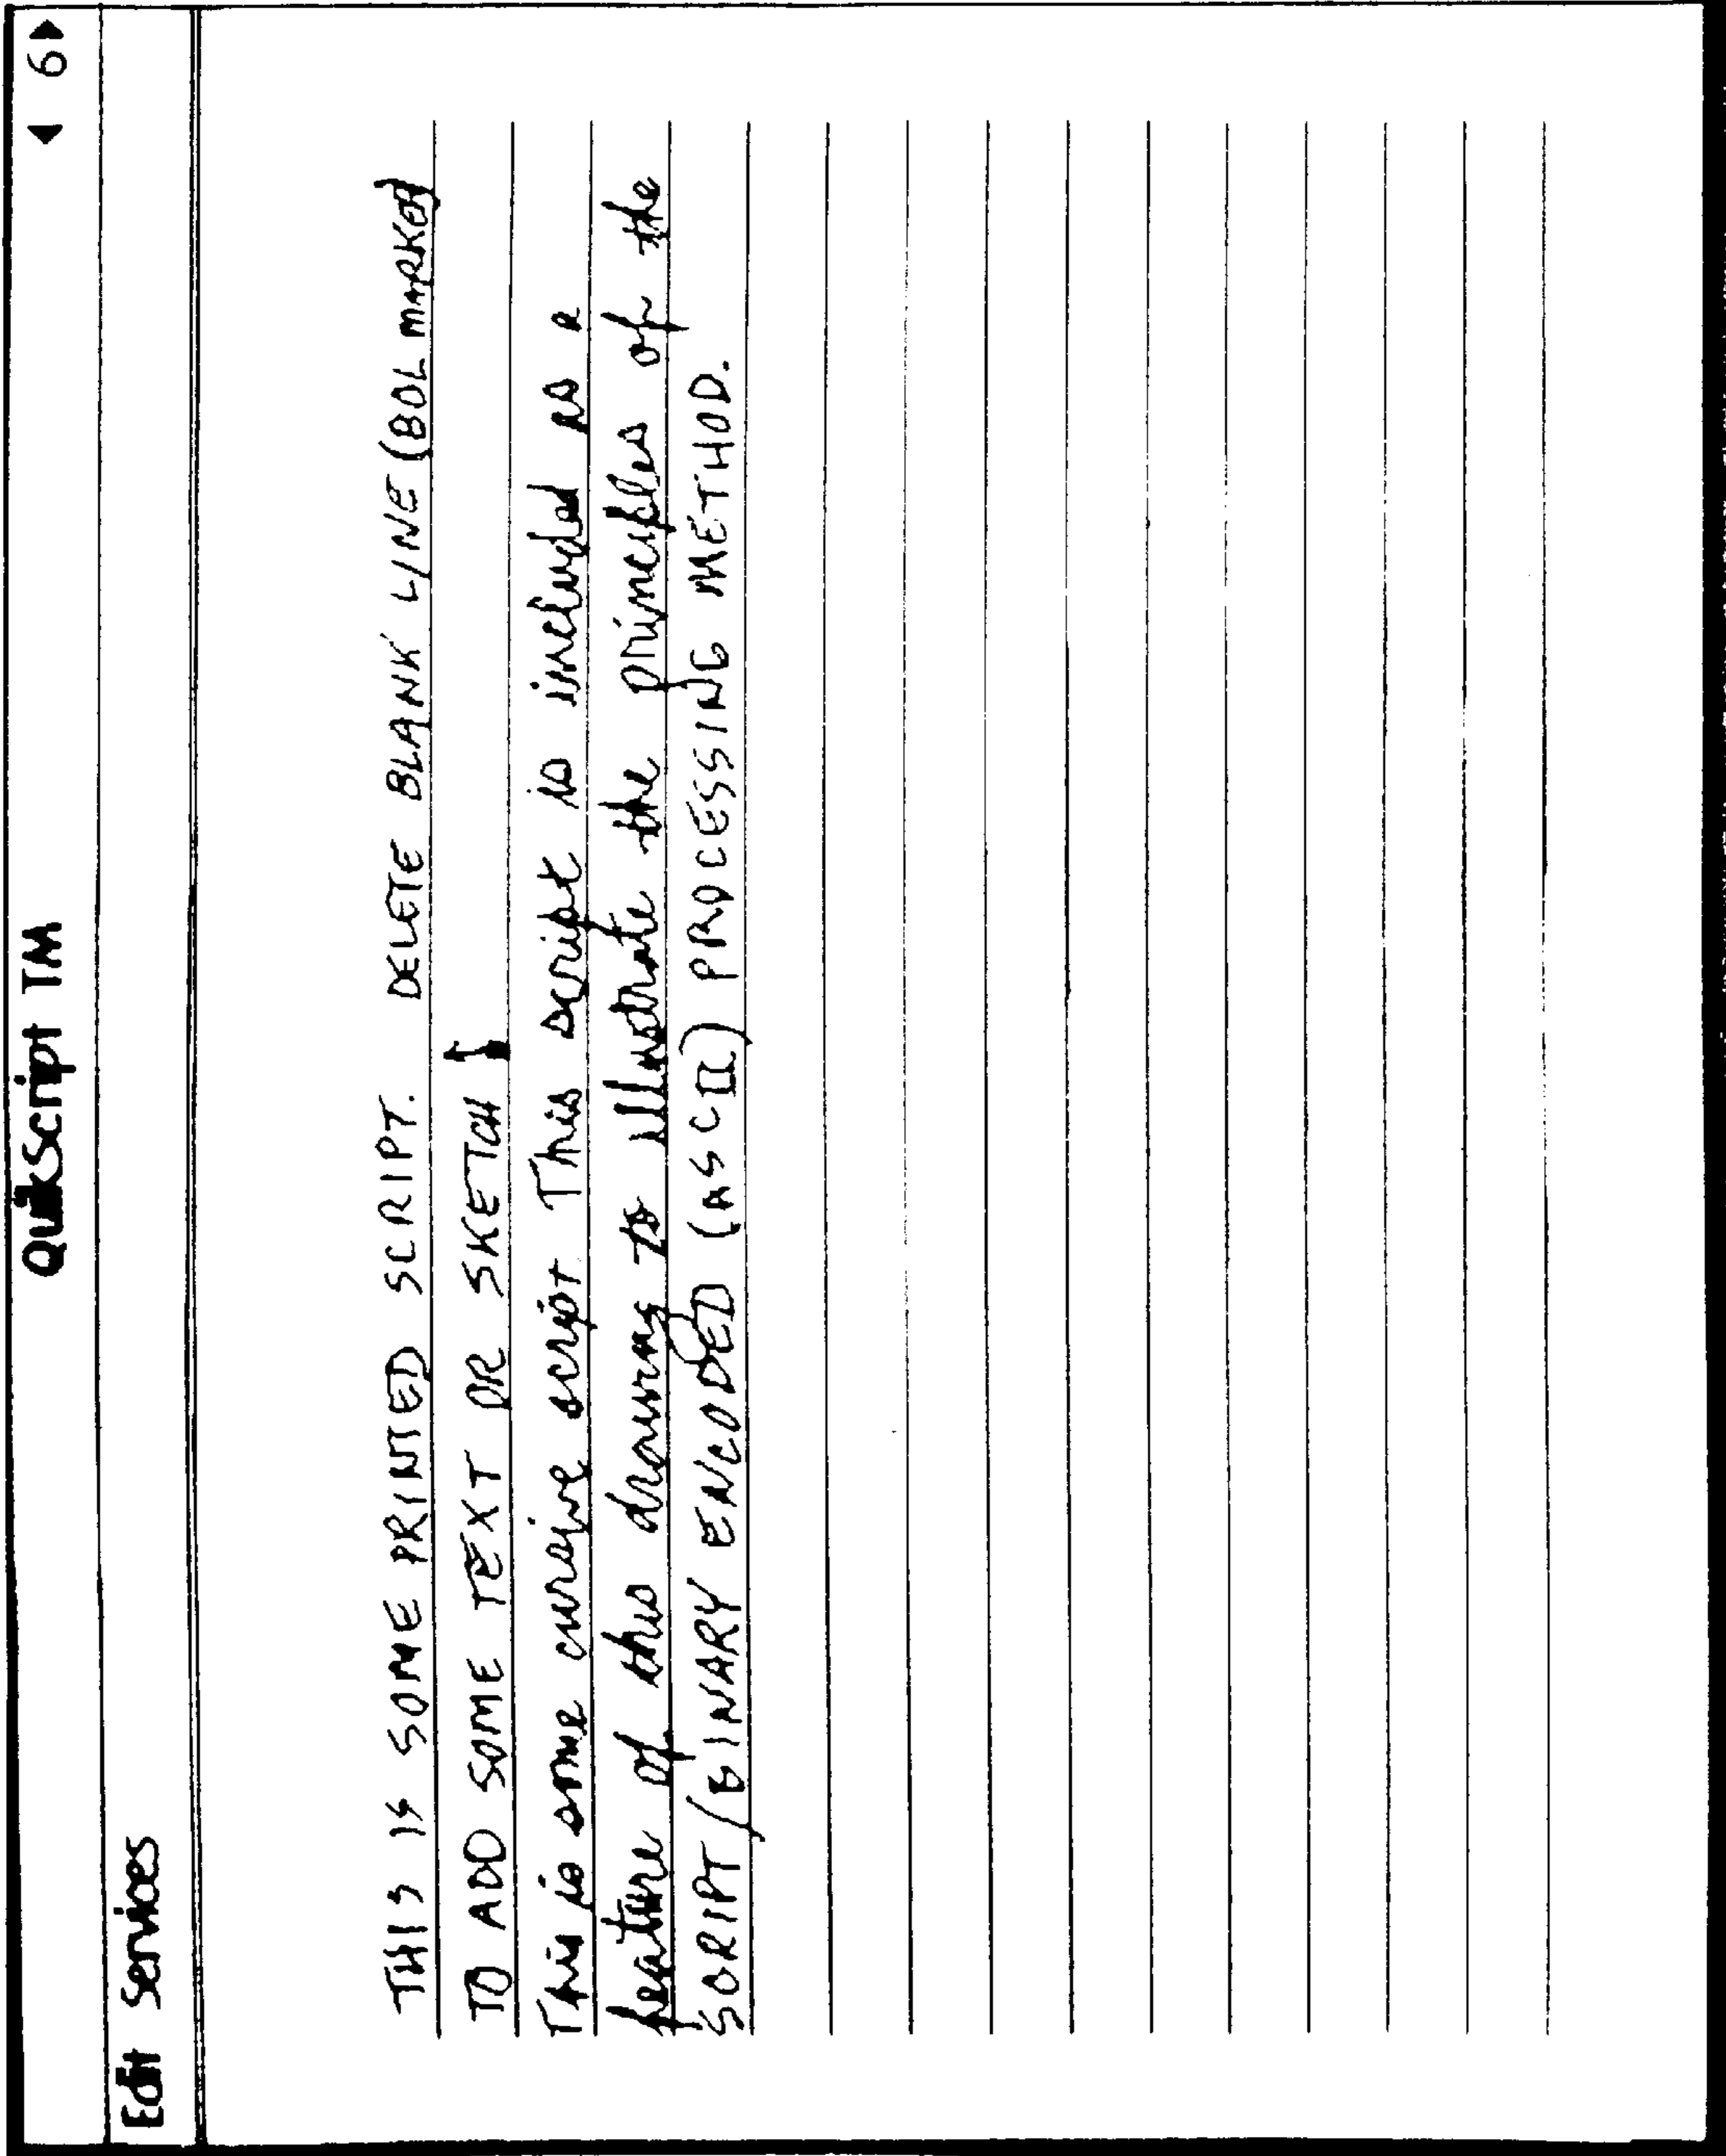 QuikScript TM ◀ 6 ▶
Edit Services
THIS IS SOME PRINTED SCRIPT. DELETE BLANK LINE (BOL MARKER)
TO ADD SOME TEXT OR SKETCH
This is some cursive script This script is included as a
feature of this drawing to illustrate the principles of the
SCRIPT/BINARY ENCODED (ASCII) PROCESSING METHOD.